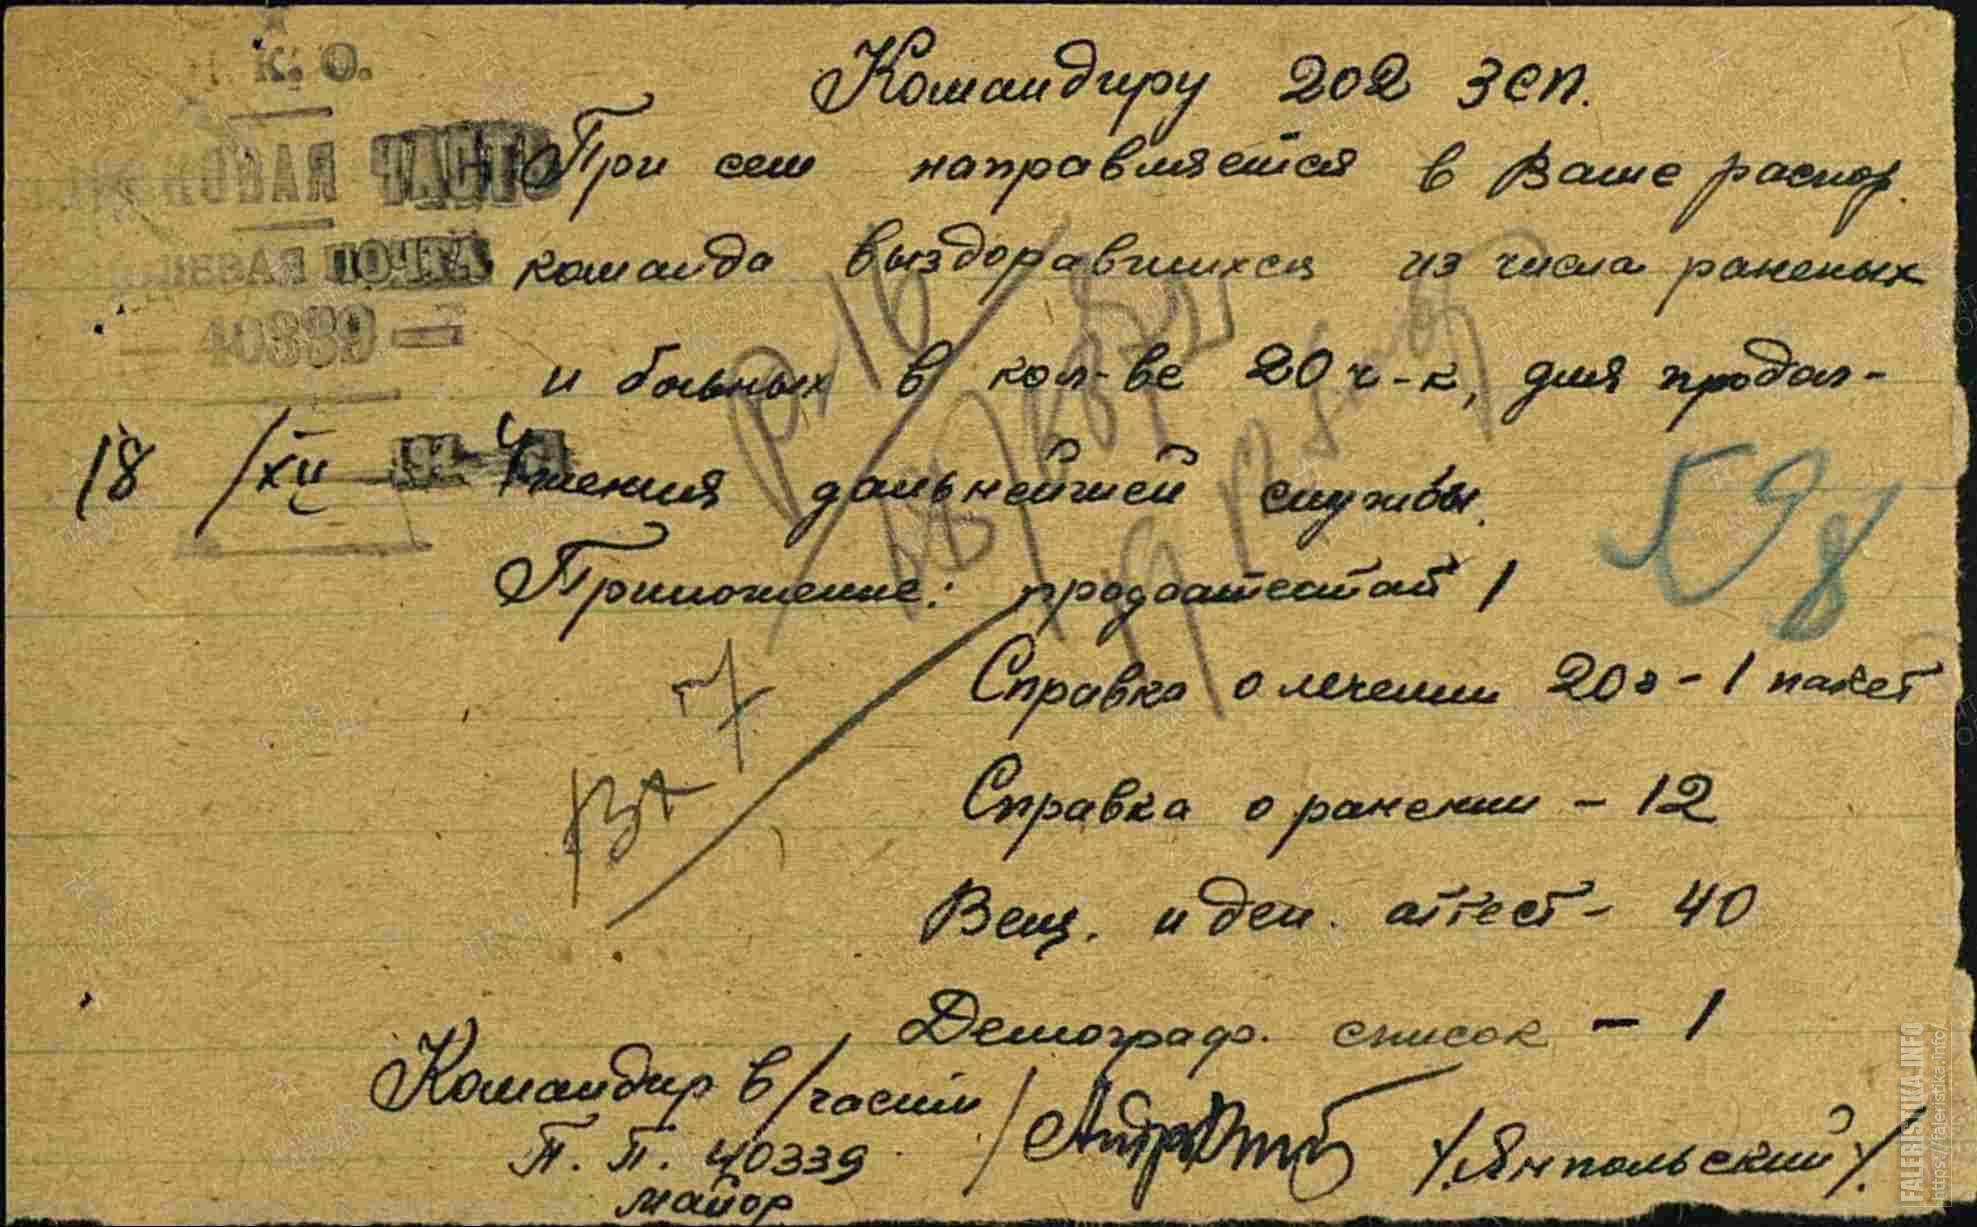 К. О.
ЧАСТЬ
ПОЧТА
— 40339 —
18 /XII 194 4
Командиру 202 зсп.
При сем направляется в Ваше распор.
команда выздоравших из числа раненых
и больных в кол-ве 20 ч-к, для продол-
жения дальнейшей службы.
Приложение: продаатестат 1
598
Справка о лечении 20 - 1 пакет
Справка о ранении - 12
Вещ. и ден. аттест - 40
Демограф. список - 1
Командир в/части
П. П. 40339
майор
/Янпольский/.
FALERISTIKA.INFO
https://faleristika.info/